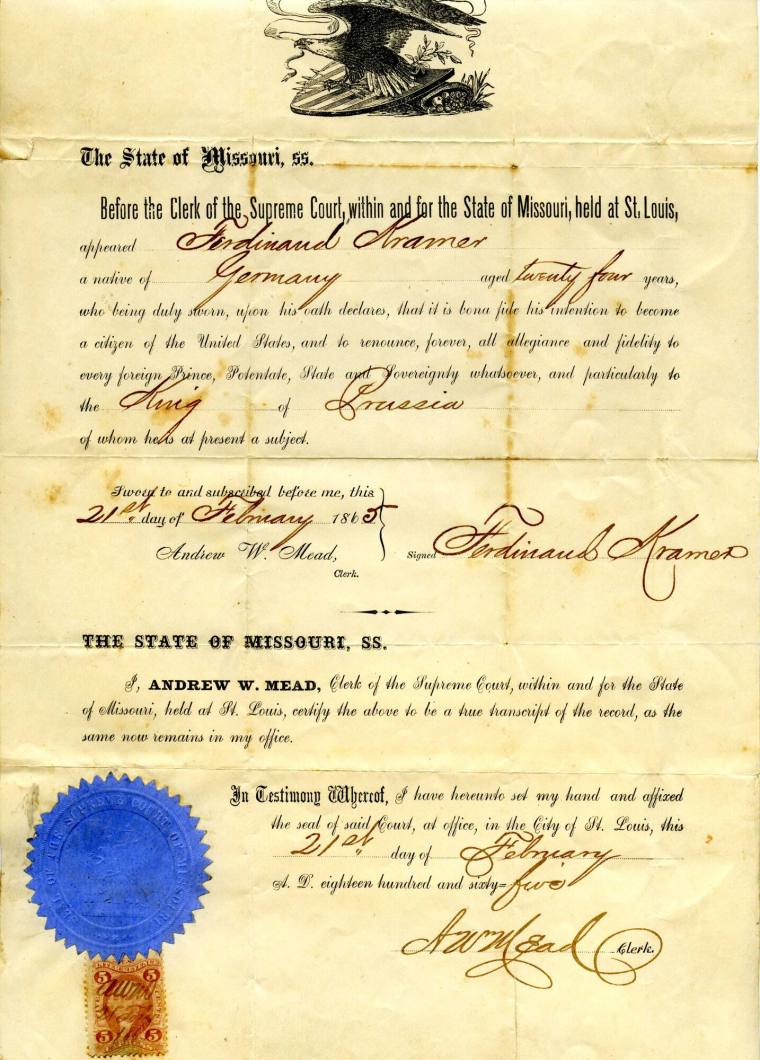 The State of Missouri, ss.
Before the Clerk of the Supreme Court, within and for the State of Missouri, held at St. Louis,
appeared Ferdinand Kramer
a native of Germany aged twenty four years,
who being duly sworn, upon his oath declares, that it is bona fide his intention to become
a citizen of the United States, and to renounce, forever, all allegiance and fidelity to
every foreign Prince, Potentate, State and Sovereignty whatsoever, and particularly to
the King of Prussia
of whom he is at present a subject.
Sworn to and subscribed before me, this
21st day of February 1865
Andrew W. Mead,
Clerk.
Signed Ferdinand Kramer
THE STATE OF MISSOURI, SS.
I, ANDREW W. MEAD, Clerk of the Supreme Court, within and for the State
of Missouri, held at St. Louis, certify the above to be a true transcript of the record, as the
same now remains in my office.
In Testimony Whereof, I have hereunto set my hand and affixed
the seal of said Court, at office, in the City of St. Louis, this
21st day of February
A. D. eighteen hundred and sixty=five
A W Mead Clerk.
SEAL OF THE SUPREME COURT OF MISSOURI
5 5
5 5